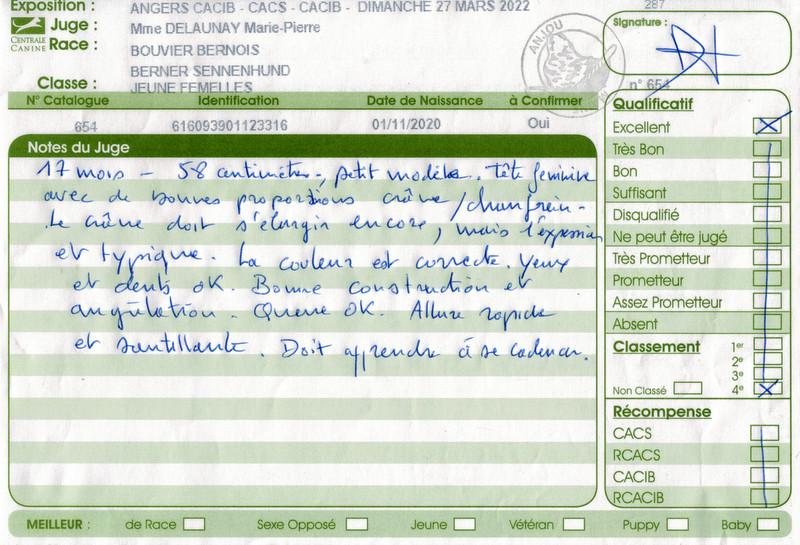 Exposition : ANGERS CACIB - CACS - CACIB - DIMANCHE 27 MARS 2022 287
CENTRALE CANINE
Juge : Mme DELAUNAY Marie-Pierre
Race : BOUVIER BERNOIS
BERNER SENNENHUND
Classe : JEUNE FEMELLES
Signature :
ANJOU
n° 654
N° Catalogue Identification Date de Naissance à Confirmer
654 616093901123316 01/11/2020 Oui
Notes du Juge
17 mois - 58 centimètres, petit modèle. Tête féminine
avec de bonnes proportions crâne / chanfrein -
Le crâne doit s'élargir encore, mais l'expression
est typique. La couleur est correcte. Yeux
et dents OK. Bonne construction et
angulation. Queue OK. Allure rapide
et sautillante. Doit apprendre à se cadencer.
Qualificatif
Excellent
Très Bon
Bon
Suffisant
Disqualifié
Ne peut être jugé
Très Prometteur
Prometteur
Assez Prometteur
Absent
Classement 1er
2e
3e
Non Classé 4e
Récompense
CACS
RCACS
CACIB
RCACIB
MEILLEUR : de Race Sexe Opposé Jeune Vétéran Puppy Baby